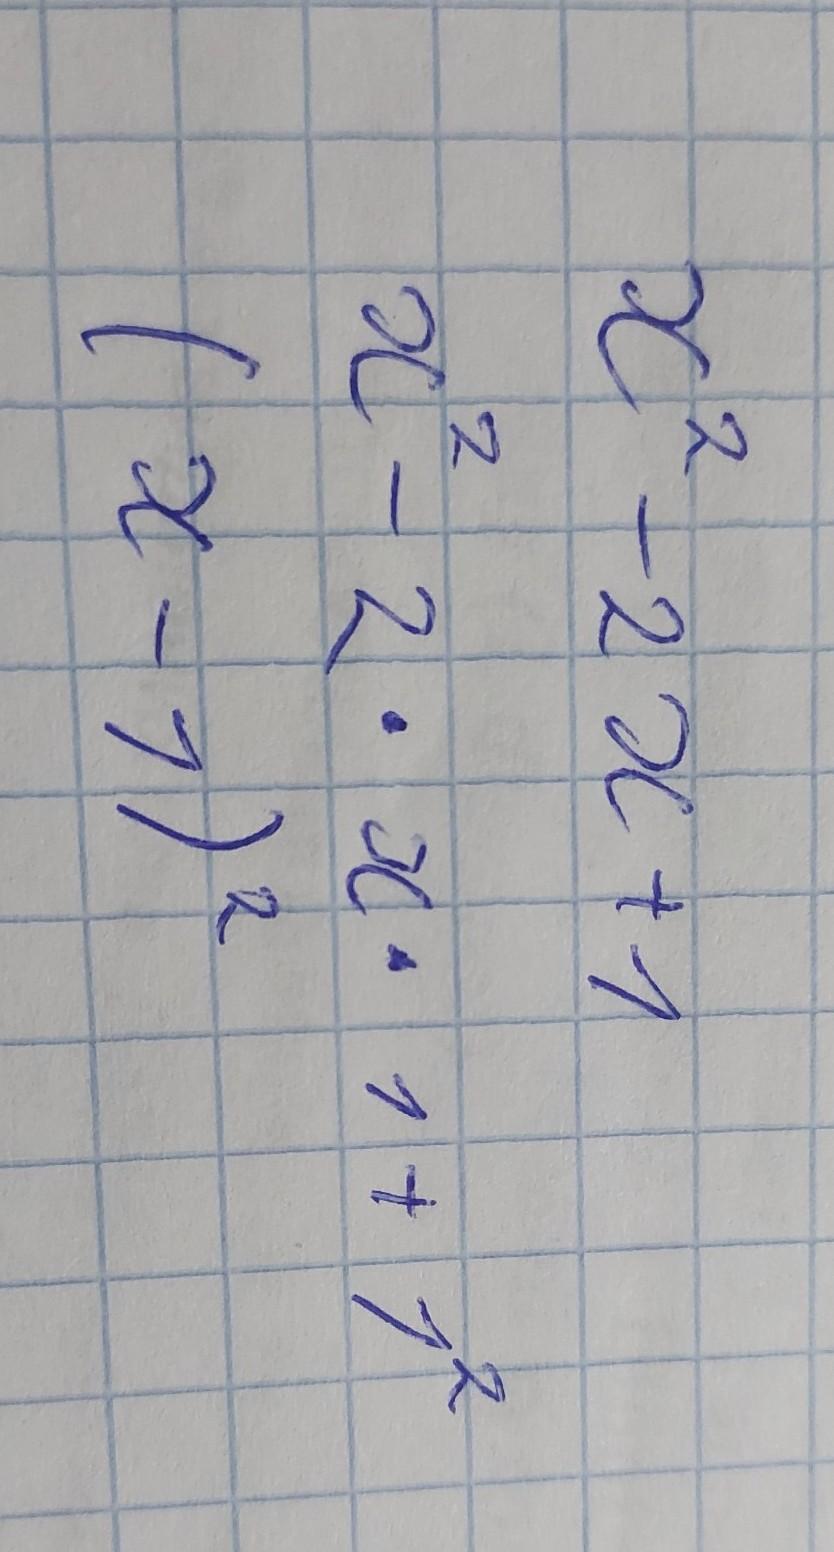 x² - 2x + 1
x² - 2 · x · 1 + 1²
(x - 1)²